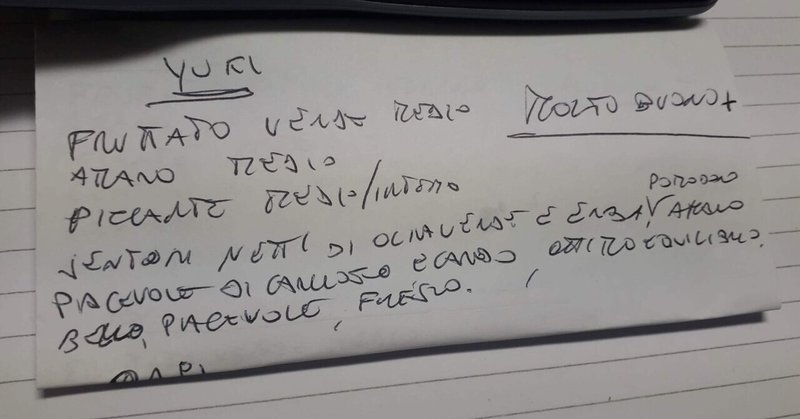 YUKI
FRUTTATO VERDE MEDIO MOLTO BUONO +
AMARO MEDIO
PICCANTE MEDIO/INTENSO
POMODORO
SENTORI NETTI DI OLIVA VERDE E ERBA, AMARO
PIACEVOLE DI CARCIOFO E CARDO OTTIMO EQUILIBRIO.
BELLO, PIACEVOLE, FRESCO.